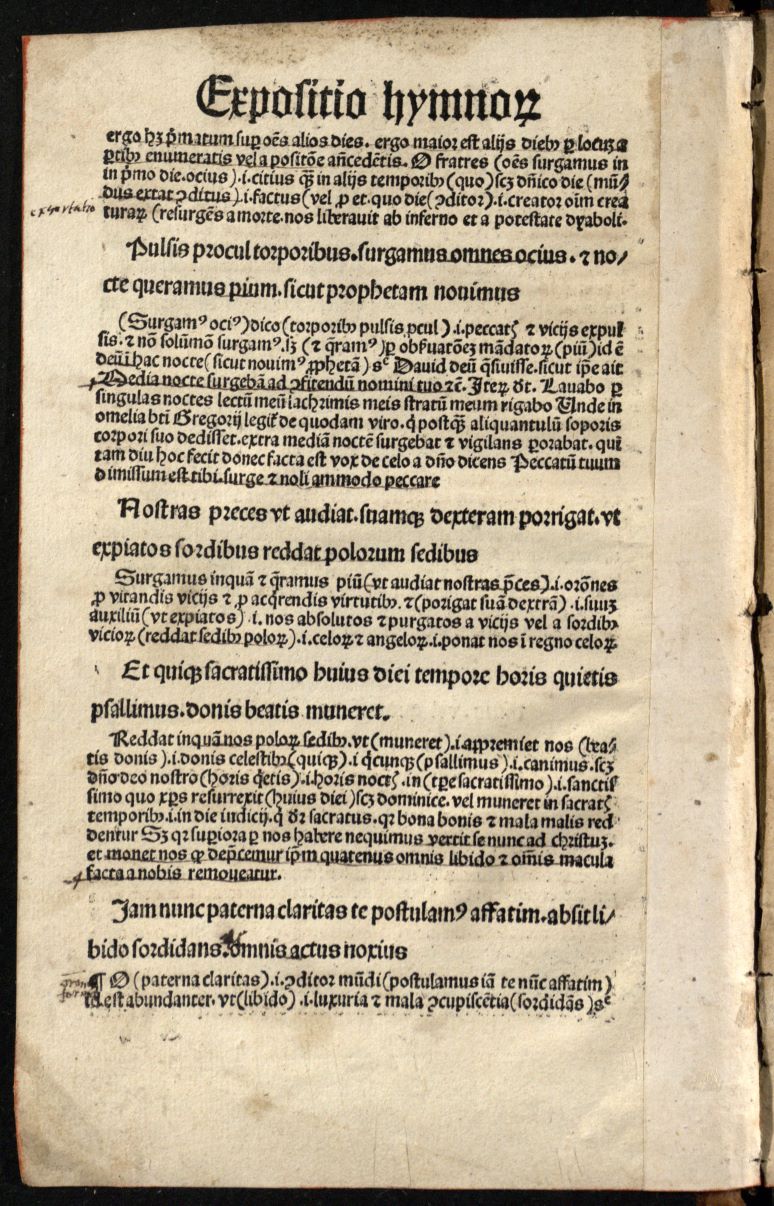 Expositio hymnoꝝ
ergo hꝫ p̄matum suꝑ oēs alios dies. ergo maior est alijs diebꝰ ꝑ locuꝫ a
ꝑtibꝰ enumeratis vel a positōe añcedētis. O fratres (oēs surgamus in
in p̄mo die. ocius) .i. citius qꝫ̄ in alijs temporibꝰ (quo) scꝫ dñico die (mū⸗
dus extat ꝯditus) .i. factus (vel ꝓ et. quo die (ꝯditor) .i. creator oīm crea
turaꝝ (resurgēs a morte. nos liberauit ab inferno et a potestate dyaboli.
Pulsis procul torporibus. surgamus omnes ocius. ⁊ no/
cte queramus pium. sicut prophetam nouimus
(Surgamꝰ ociꝰ) dico (torporibꝰ pulsis ꝓcul) .i. peccatꝭ ⁊ vicijs expul
sis. ⁊ nō solūmō surgamꝰ. lꝫ (⁊ q̄ramꝰ) ꝑ obẜuatōeꝫ mādatoꝝ (piū) id ē
deū ī hac nocte (sicut nouimꝰ ꝓphetā) sᶜ Dauid deū q̄siuisse. sicut ip̄e ait
Media nocte surgebā ad ꝯfitendū nomini tuo ⁊c̄. Iteꝝ dr̄. Lauabo ꝑ
singulas noctes lectū meū lachrimis meis stratū meum rigabo Unde in
omelia bt̄i Gregorij legit̄ de quodam viro. q̇ postqꝫ̄ aliquantulū soporis
torpori suo dedisset. extra mediā noctē surgebat ⁊ vigilans ꝑorabat. qui
tam diu hoc fecit donec facta est vox de celo a dño dicens Peccatū tuum
dimissum est tibi. surge ⁊ noli ammodo peccare
Nostras preces vt audiat. suamqꝫ dexteram porrigat. vt
expiatos sordibus reddat polorum sedibus
Surgamus inquā ⁊ q̄ramus piū (vt audiat nostras p̄ces) .i. orōnes
ꝓ vitandis vicijs ⁊ ꝓ acq̄rendis virtutibꝰ. ⁊ (porigat suā dextrā) .i. suuꝫ
auxiliū (vt expiatos) .i. nos absolutos ⁊ purgatos a vicijs vel a sordibꝰ
vicioꝝ (reddat sedibꝰ poloꝝ) .i. celoꝝ ⁊ angeloꝝ .i. ponat nos ī regno celoꝝ
Et quiqꝫ sacratissimo huius diei tempore horis quietis
psallimus. donis beatis muneret.
Reddat inquā nos poloꝝ sedibꝰ. vt (muneret) .i. appremiet nos (bea⸗
tis donis) .i. donis celestibꝰ (quiqꝫ) .i. q̇cunqꝫ (psallimus) .i. canimus. scꝫ
dño deo nostro (horis q̇etis) .i. horis noctꝭ. in (tꝑe sacratissimo) .i. sanctis
simo quo xp̄s resurrexit (huius diei) scꝫ dominice. vel muneret in sacratꝭ
temporibꝰ .i. in die iudicij. q̇ dr̄ sacratus. qr bona bonis ⁊ mala malis red
dentur Sꝫ qr suꝑiora ꝑ nos habere nequimus vertit se nunc ad christuꝫ.
et monet nos ꝙ dep̄cemur ip̄m quatenus omnis libido ⁊ om̄is macula
facta a nobis remoueatur.
Iam nunc paterna claritas te postulamꝰ affatim. absit li/
bido sordidans. omnis actus noxius
¶ O (paterna claritas) .i. ꝯditor mūdi (postulamus iā te nūc affatim)
id est abundanter. vt (libido) .i. luxuria ⁊ mala ꝯcupiscētia (sordidās) sᶜ